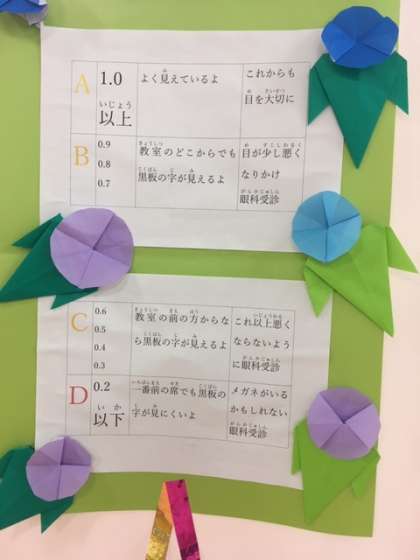 A 1.0 以上 よく見えているよ これからも
目を大切に
B 0.9 0.8 0.7 教室のどこからでも 目が少し悪く
黒板の字が見えるよ なりかけ
眼科受診
C 0.6 0.5 0.4 0.3 教室の前の方からな これ以上悪く
ら黒板の字が見えるよ ならないよう
に眼科受診
D 0.2 以下 一番前の席でも黒板の メガネがいる
字が見にくいよ かもしれない
眼科受診